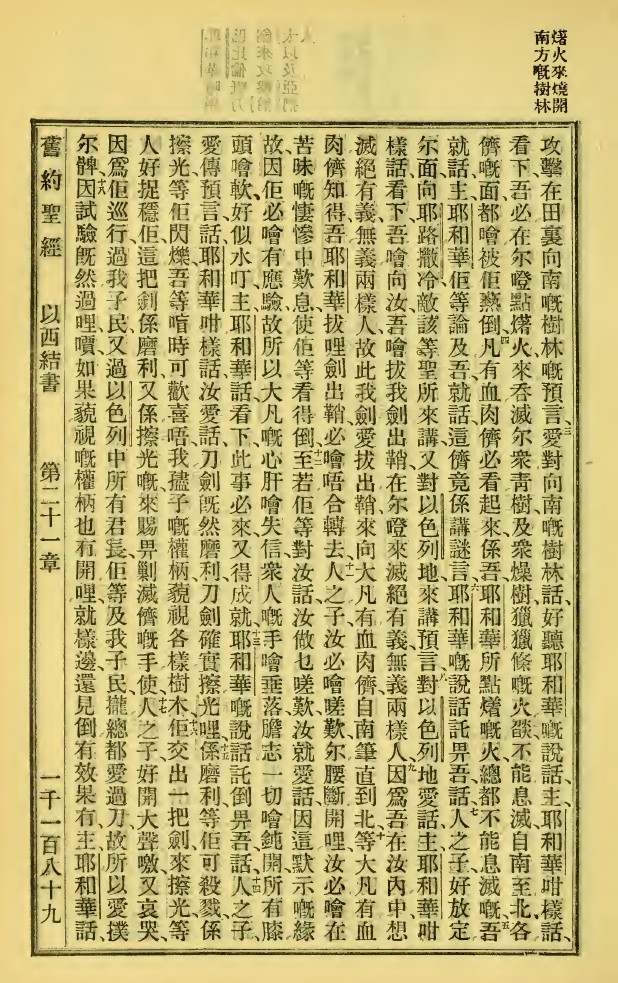 爩火來燒開
南方嘅樹林
攻擊在田裏向南嘅樹林嘅預言、三愛對向南嘅樹林話、好聽耶和華嘅說話、主耶和華咁樣話、
看下吾必在尔噔點爩火來吞滅尔衆青樹及衆燥樹獵獵條嘅火燄不能息滅自南至北、各
儕嘅面都噲被佢燕倒、四凡有血肉儕必看起來係吾耶和華所點爩嘅火總都不能息滅嘅、五吾
就話、主耶和華佢等論及吾就話、這儕竟係講謎言、六耶和華嘅說話託畀吾話、七人之子好放定
尔面向耶路撒冷、敵該等聖所來講、又對以色列地來講預言、八對以色列地愛話、主耶和華咁
樣話、看下吾噲向汝、吾噲拔我劍出鞘、在尔噔來滅絕有義無義兩樣人、九因爲吾在汝內中想
滅絕有義無義兩樣人、故此我劍愛拔出鞘來向大凡有血肉儕自南筆直到北、十等大凡有血
肉儕知得吾耶和華拔哩劍出鞘、必噲唔合轉去、十一人之子汝必噲嗟歎、尔腰斷開哩、汝必噲在
苦味嘅悽慘中歎息、使佢等看得倒、十二至若佢等對汝話、汝做乜嗟歎、汝就愛話、因這默示嘅緣
故、因佢必噲有應驗、故所以大凡嘅心肝噲失信、衆人嘅手噲垂落、膽志一切噲鈍開、所有膝
頭噲軟、好似水叮、主耶和華話、看下此事必來、又得成就、十三耶和華嘅說話託倒畀吾話、十四人之子
愛傳預言話、耶和華咁樣話、汝愛話、刀劍既然磨利、刀劍確實擦光哩、十五係磨利、等佢可殺戮、係
擦光、等佢閃爍、吾等喑時可歡喜唔、我孻子嘅權柄藐視各樣樹木、十六佢交出一把劍來擦光、等
人好捉穩佢、這把劍係磨利、又係擦光嘅、來賜畀剿滅儕嘅手、使十七人之子好開大聲噭、又哀哭、
因爲佢巡行過我子民、又過以色列中所有君長、佢等及我子民攏總都愛過刀、故所以愛撲
尔髀、十八因試驗既然過哩、嚽如果藐視嘅權柄也冇開哩、就樣邊還見倒有效果冇、主耶和華話、
舊約聖經　以西結書　第二十一章　一千一百八十九